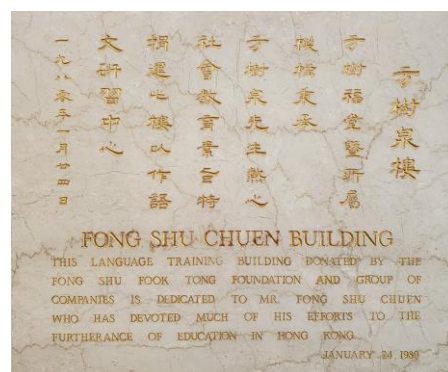 方樹泉樓
方樹福堂暨所屬
機構秉承
方樹泉先生熱心
社會教育旨特
捐建此樓以作語
文研習中心
一九八零年一月廿四日
FONG SHU CHUEN BUILDING
THIS LANGUAGE TRAINING BUILDING DONATED BY THE
FONG SHU FOOK TONG FOUNDATION AND GROUP OF
COMPANIES IS DEDICATED TO MR. FONG SHU CHUEN
WHO HAS DEVOTED MUCH OF HIS EFFORTS TO THE
FURTHERANCE OF EDUCATION IN HONG KONG
JANUARY 24, 1980